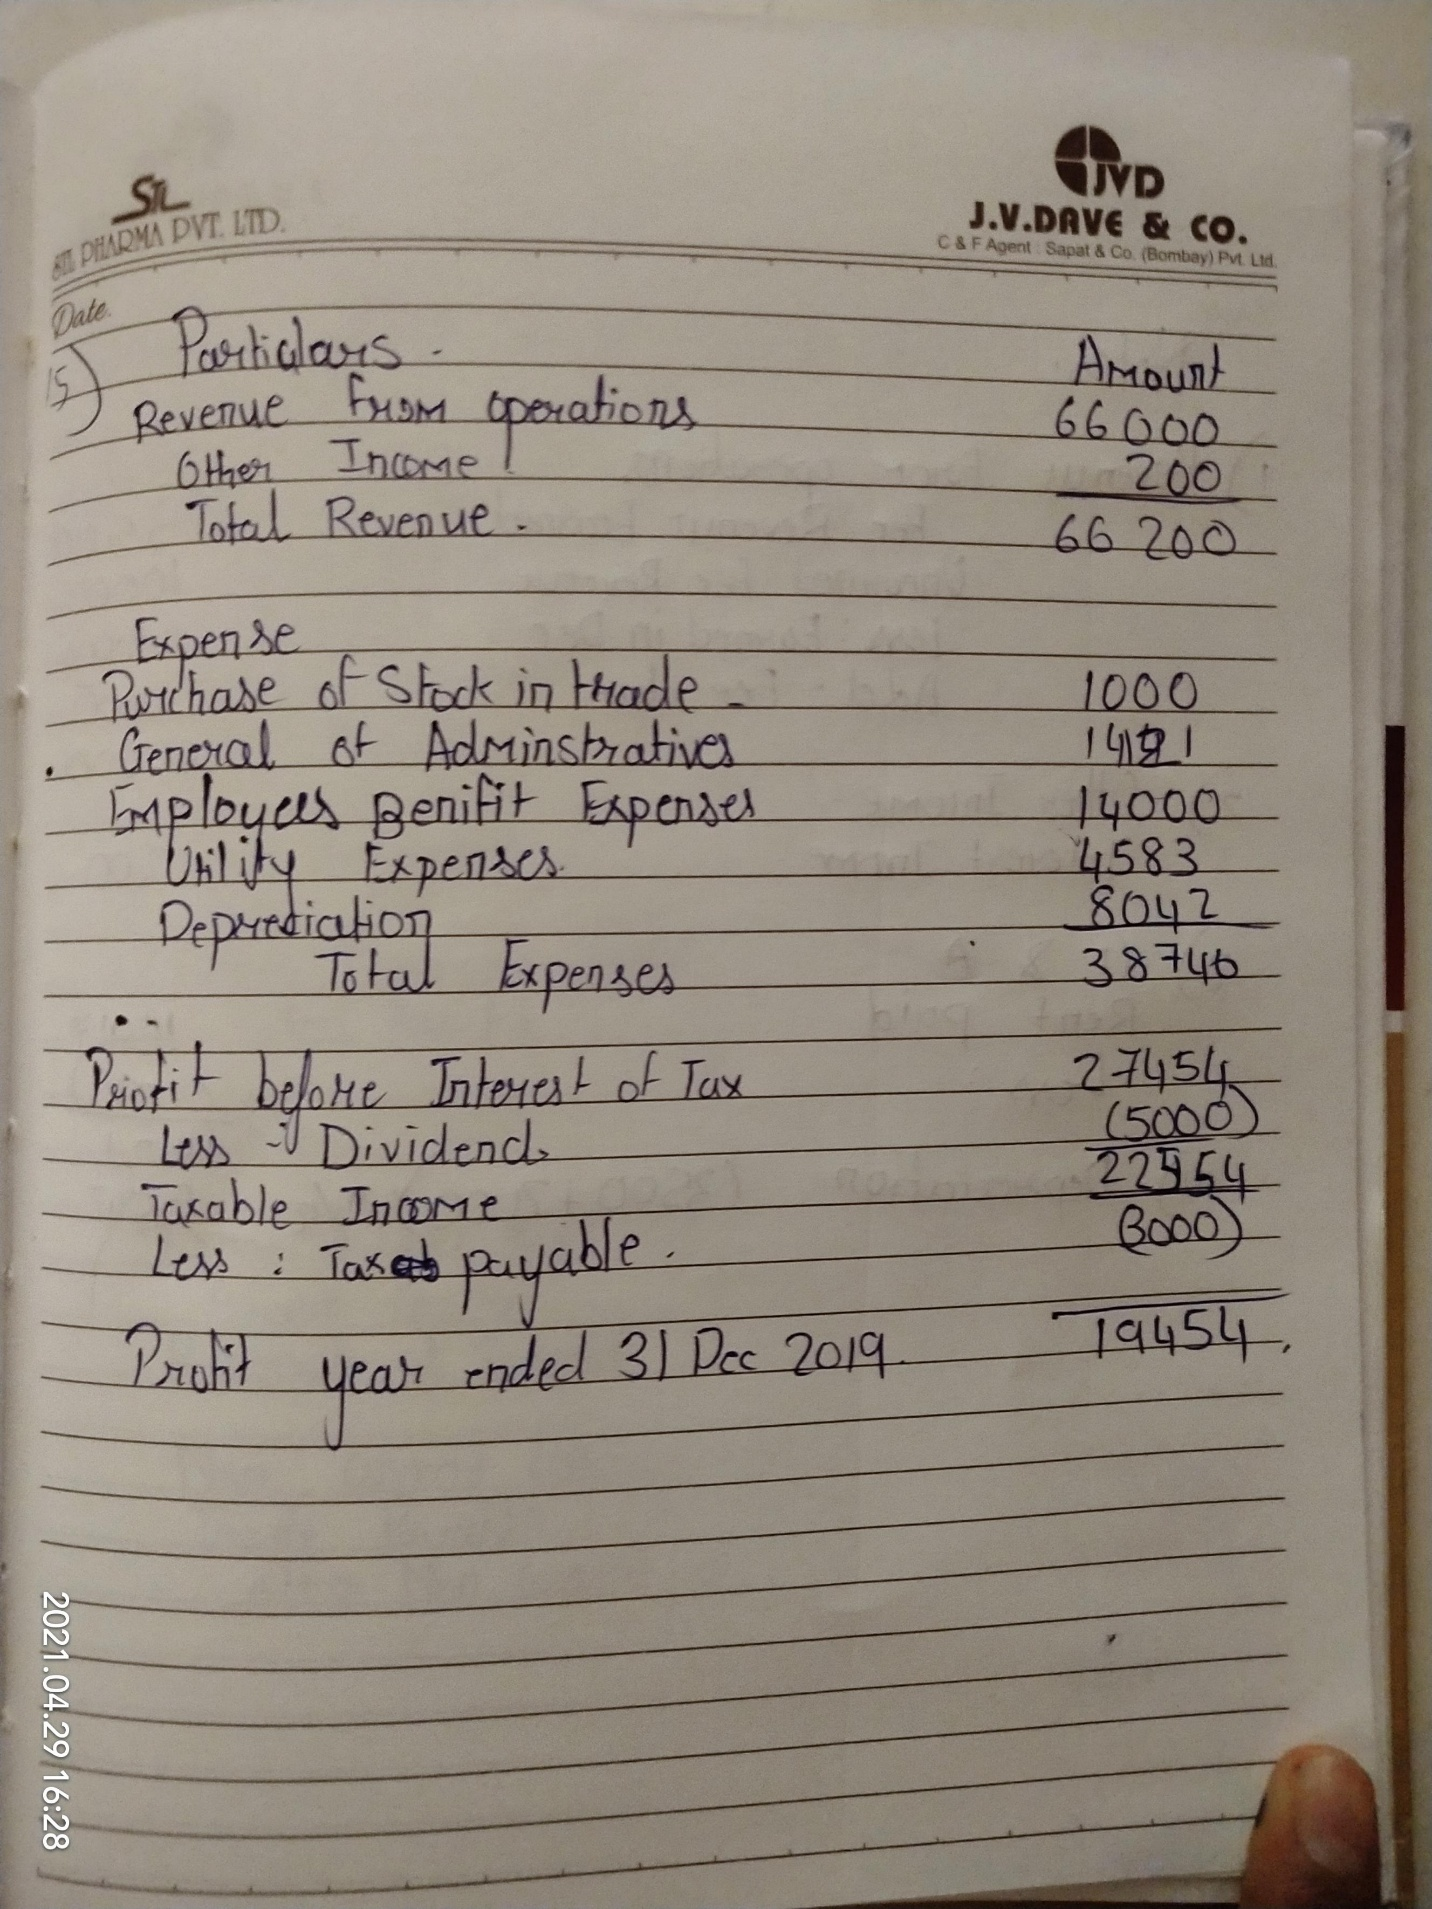 STL
STL PHARMA PVT. LTD.
JVD
J.V.DAVE & CO.
C & F Agent : Sapat & Co. (Bombay) Pvt. Ltd.
Date.
15) Particulars. Amount
Revenue from operations 66000
Other Income 200
Total Revenue. 66200
Expense
Purchase of Stock in trade 1000
General of Adminstratives
Employees Benifit Expenses 14000
Utility Expenses. 4583
Depreciation 8042
Total Expenses 38746
Profit before Interest of Tax 27454
Less :- Dividend. (5000)
Taxable Income 22454
Less : Tax payable. (3000)
Profit year ended 31 Dec 2019. 19454.
2021.04.29 16:28